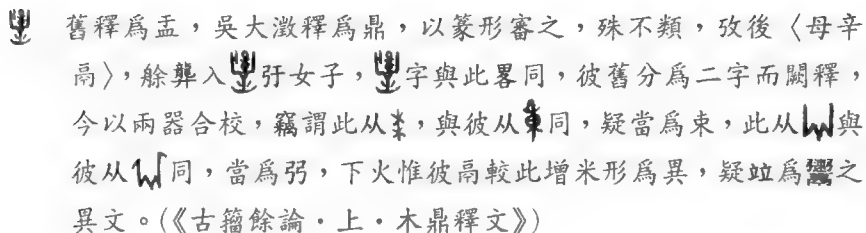 舊釋爲盂,吳大澂釋爲鼎,以篆形審之,殊不類,攷後〈母辛
鬲〉,艅龏入𢎨女子,字與此畧同,彼舊分爲二字而闕釋,
今以兩器合校,竊謂此从,與彼从同,疑當爲束,此从與
彼从同,當爲弜,下火惟彼鬲較此增米形爲異,疑竝爲之
異文。(《古籀餘論·上·木鼎釋文》)